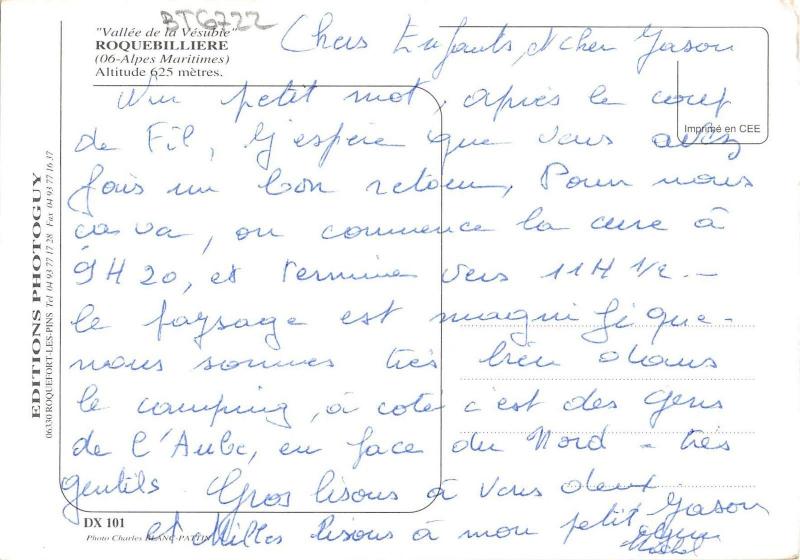 BT6722
"Vallée de la Vésubie"
ROQUEBILLIERE
(06-Alpes Maritimes)
Altitude 625 mètres.
Imprimé en CEE
Chers Enfants, et cher Jason
Un petit mot, après le coup
de Fil, J'espère que vous avez
fais un bon retour, Pour nous
ças va, on commence la cure à
9H20, et termine vers 11H 1/2 -
le paysage est magnifique -
nous sommes très bien dans
le camping, à coté c'est des gens
de l'Aube, en face du Nord - très
gentils. Gros bisous à vous deux
et Milles bisous à mon petit Jason
Michel
EDITIONS PHOTOGUY
06330 ROQUEFORT-LES-PINS Tel 04 93 77 17 28 Fax 04 93 77 16 37
DX 101
Photo Charles BLANC-PATTIN